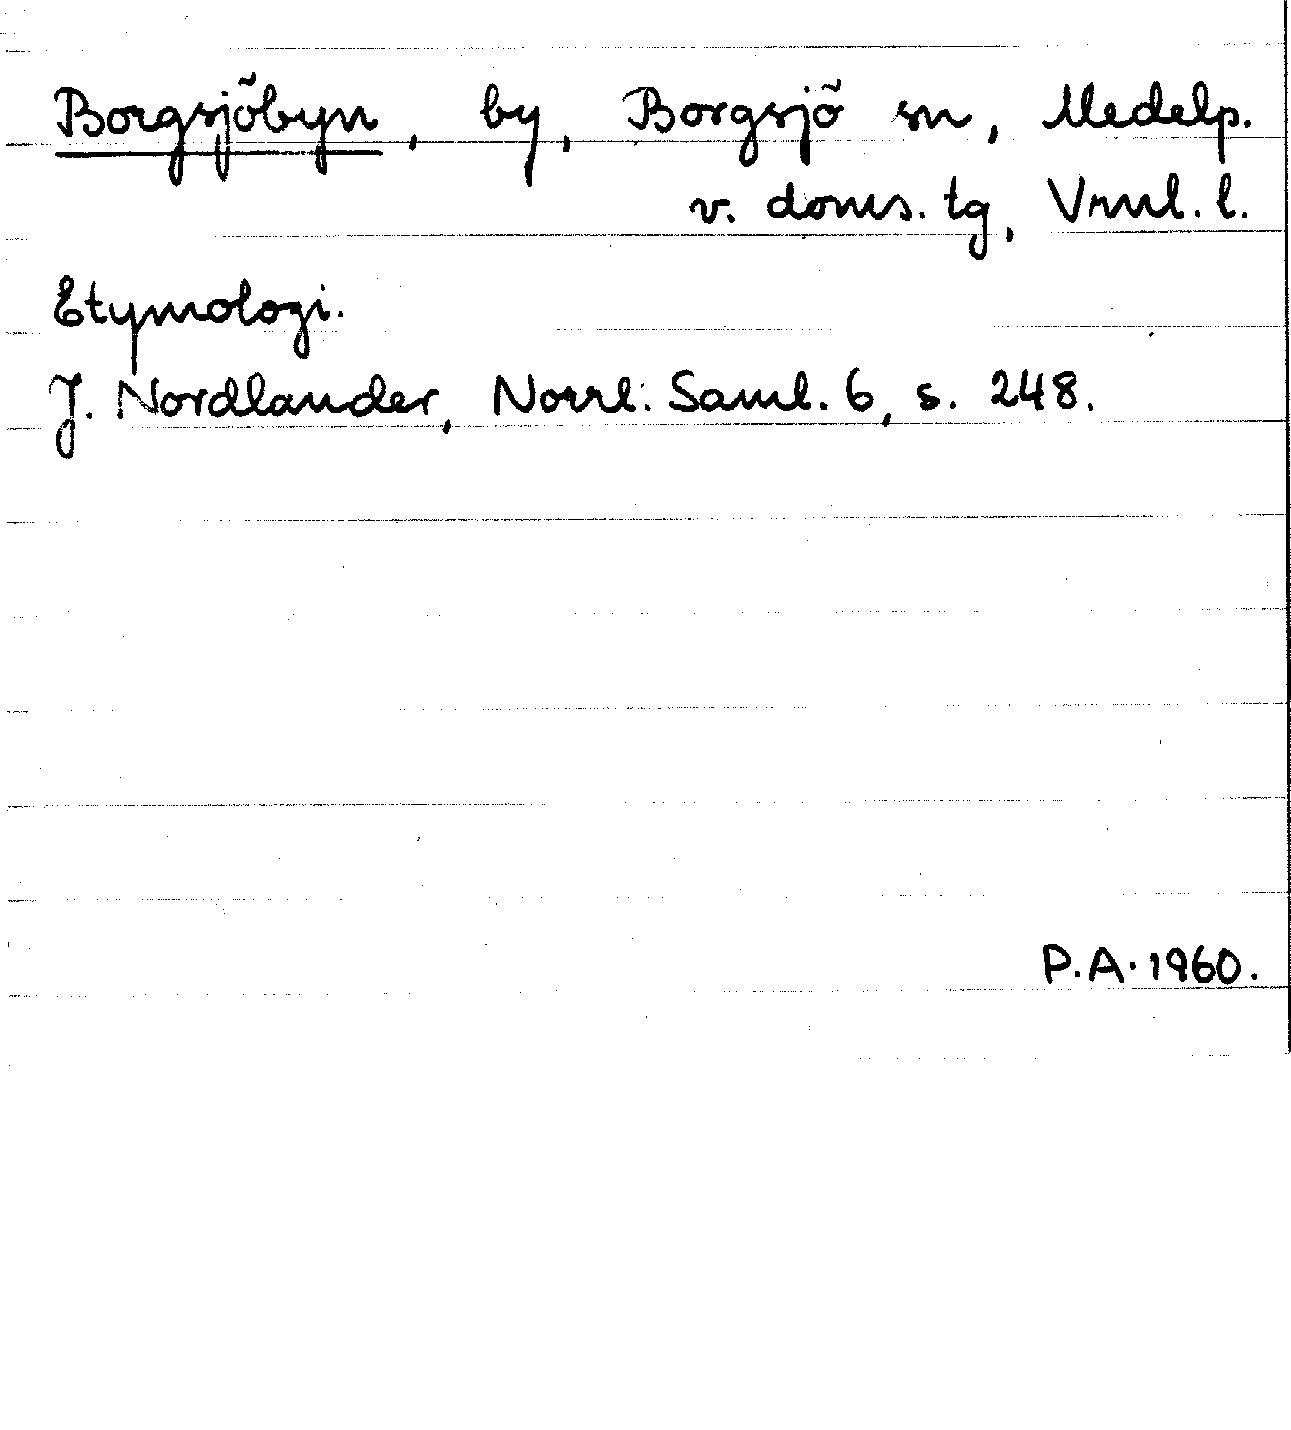 Borgsjöbyn, by, Borgsjö sn, Medelp.
v. doms. tg, Vrnl. l.
Etymologi.
J. Nordlander, Norrl. Saml. 6, s. 248.
P.A. 1960.